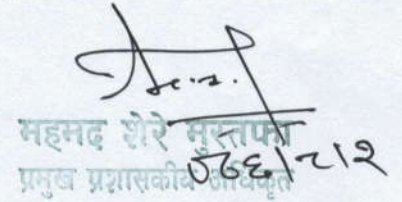 महमद शेरे मुस्तफा
प्रमुख प्रशासकीय अधिकृत
०८६/८/२